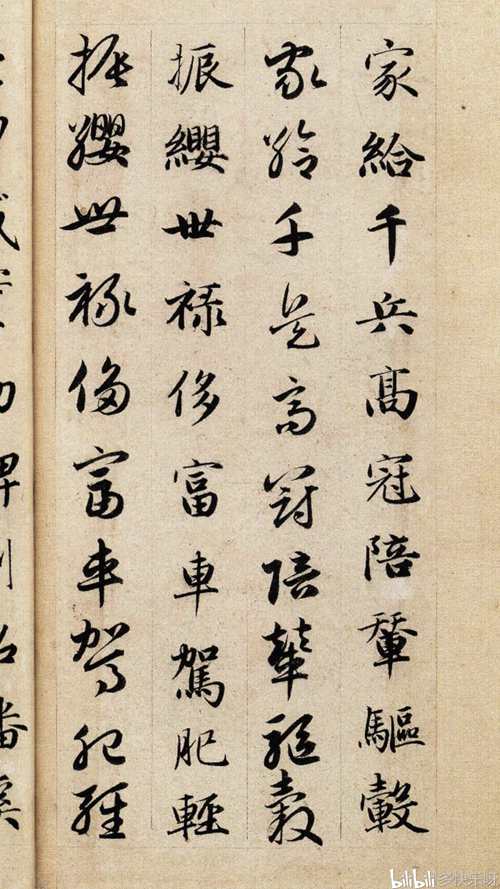 家給千兵高冠陪輦驅轂
家給千兵高冠陪輦驅轂
振纓世祿侈富車駕肥輕
振纓世祿侈富車駕肥輕
碑刻銘磻溪
bilibili @多快乐呀